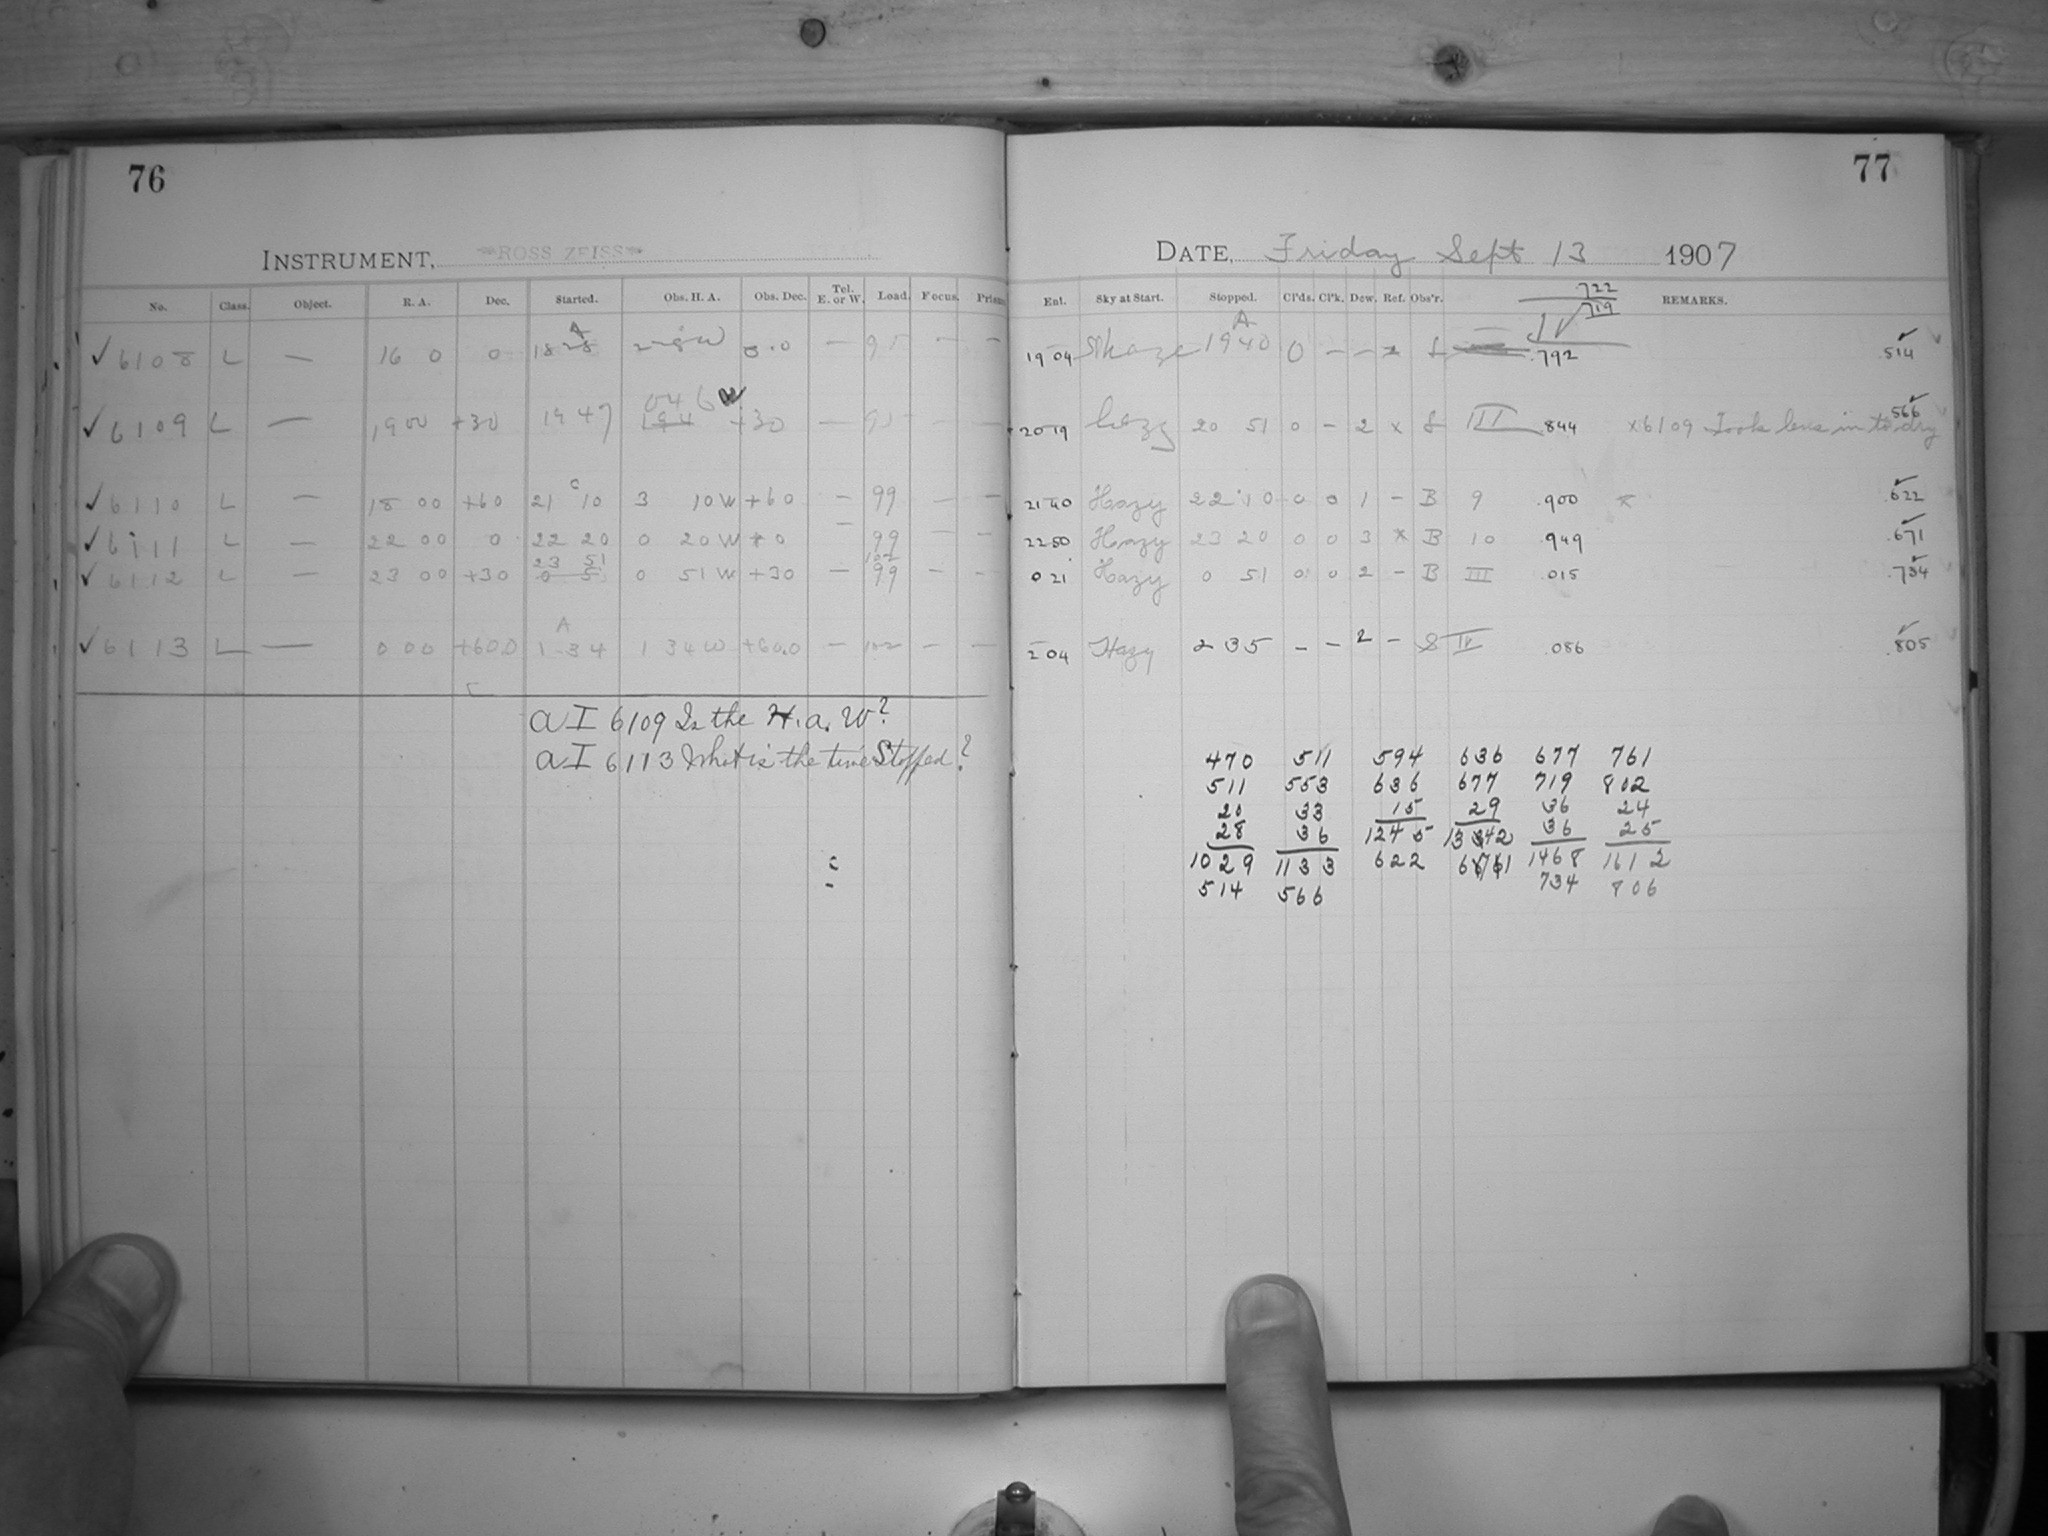 76
INSTRUMENT, ROSS ZEISS
No. Class. Object. R. A. Dec. Started. Obs. H. A. Obs. Dec. Tel. E. or W. Load. Focus.
✓ 6108 L — 16 0 0 A — — —
✓ 6109 L — 19 00 +30 19 47 0 46 W +30 — — —
✓ 6110 L — 18 00 +60 21 C 10 3 10 W +60 — 99 — —
✓ 6111 L — 22 00 0 22 20 0 20 W 0 — 99 — —
✓ 6112 L — 23 00 +30 23 51 0 51 W +30 — 99 — —
✓ 6113 L — 0 00 +60.0 A 1 34 1 34 W +60.0 — 102 — —
a I 6109 Is the H.a. W?
a I 6113 What is the time Stopped?
77
DATE, Friday Sept 13 1907
Ent. Sky at Start. Stopped. Cl'ds. Cl'k. Dew. Ref. Obs'r. REMARKS.
722
719
19 04 A 19 40 0 — — .792 .514
20 19 hazy 20 51 0 — 2 x S III .844 x 6109 Took lens in to dry .566
21 40 Hazy 22 10 0 0 1 — B 9 .900 x .622
22 50 Hazy 23 20 0 0 3 x B 10 .949 .671
0 21 Hazy 0 51 0 0 2 — B III .015 .734
2 04 Hazy 2 35 — — 2 — S IV .086 .805
470 511 594 636 677 761
511 553 636 677 719 802
20 33 15 29 36 24
28 36 1245 1342 36 25
1029 1133 622 671 1468 1612
514 566 734 806